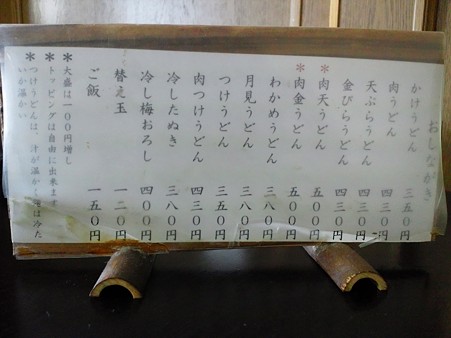 おしながき
かけうどん 三五０円
肉うどん 四三０円
天ぷらうどん 四三０円
金ぴらうどん 四三０円
＊肉天うどん 五００円
＊肉金うどん 五００円
わかめうどん 三八０円
月見うどん 三八０円
つけうどん 三五０円
肉つけうどん 四三０円
冷したぬき 三八０円
冷し梅おろし 四００円
替え玉 一二０円
ご飯 一五０円
＊大盛は一００円増し
＊トッピングは自由に出来ます
＊つけうどんは、汁が温かく麺は冷た
いか温かい